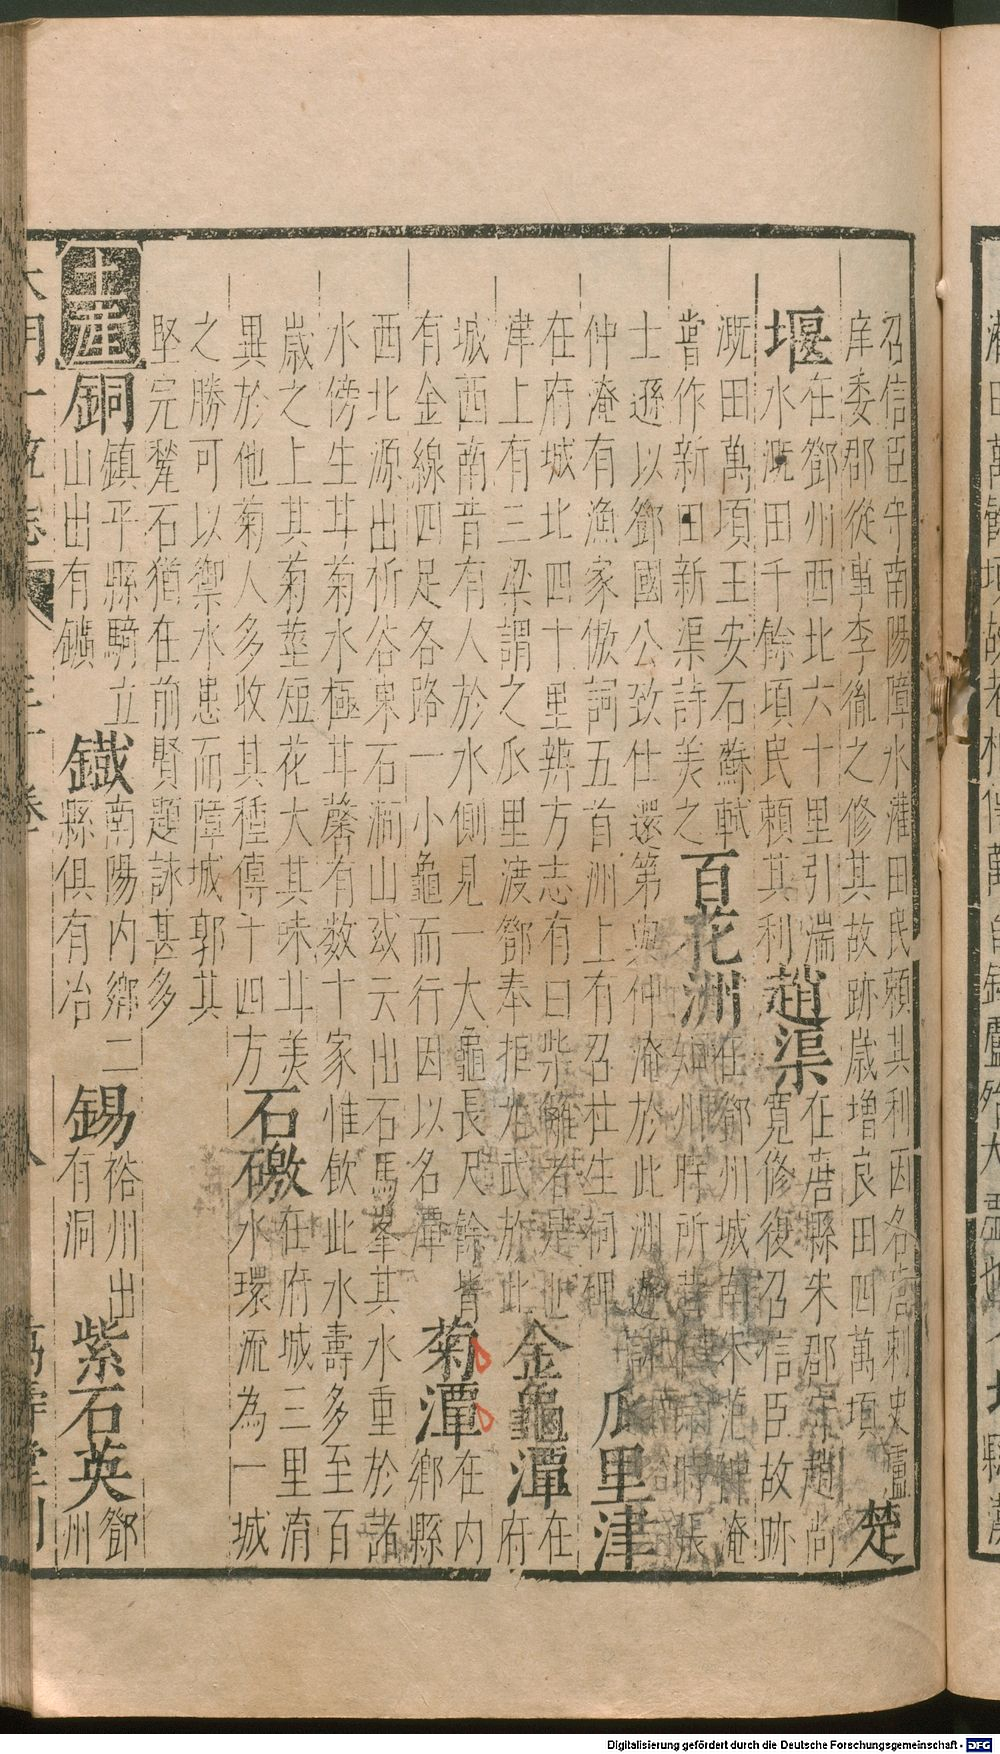 召信臣守南陽障水灌田民賴其利因名唐刺史盧
庠委郡從事李胤之修其故跡歲增良田四萬頃 楚
堰 在鄧州西北六十里引湍
水溉田千餘頃民賴其利 趙渠 在唐縣宋郡守趙尚
寬修復召信臣故跡
溉田萬頃王安石蘇軾
嘗作新田新渠詩美之 百花洲 在鄧州城南宋范仲淹
知州時所營 時張
士遜以鄧國公致仕還第與仲淹於此洲遊詠
仲淹有漁家傲詞五首洲上有召杜生祠碑 瓜里津
在府城北四十里辨方志有曰柴籬者是也
津上有三梁謂之瓜里渡鄧奉拒光武於此 金龜潭 在
府
城西南昔有人於水側見一大龜長尺餘皆
有金線四足各路一小龜而行因以名潭 菊潭 在内
鄉縣
西北源出析谷東石澗山或云出石馬峯其水重於諸
水傍生甘菊水極甘馨有數十家惟飲此水壽多至百
歲之上其菊莖短花大其味甘美
異於他菊人多收其種傳于四方 石磝 在府城三里淯
水環流為一城
之勝可以禦水患而障城郭其
堅完鼇石猶在前賢題詠甚多
土產 銅 鎮平縣騎立
山出有鑛 鐵 南陽内鄉二
縣俱有冶 錫 裕州出
有洞 紫石英 鄧
州
大明一統志 三十卷 八 萬壽堂刊
Digitalisierung gefördert durch die Deutsche Forschungsgemeinschaft - DFG